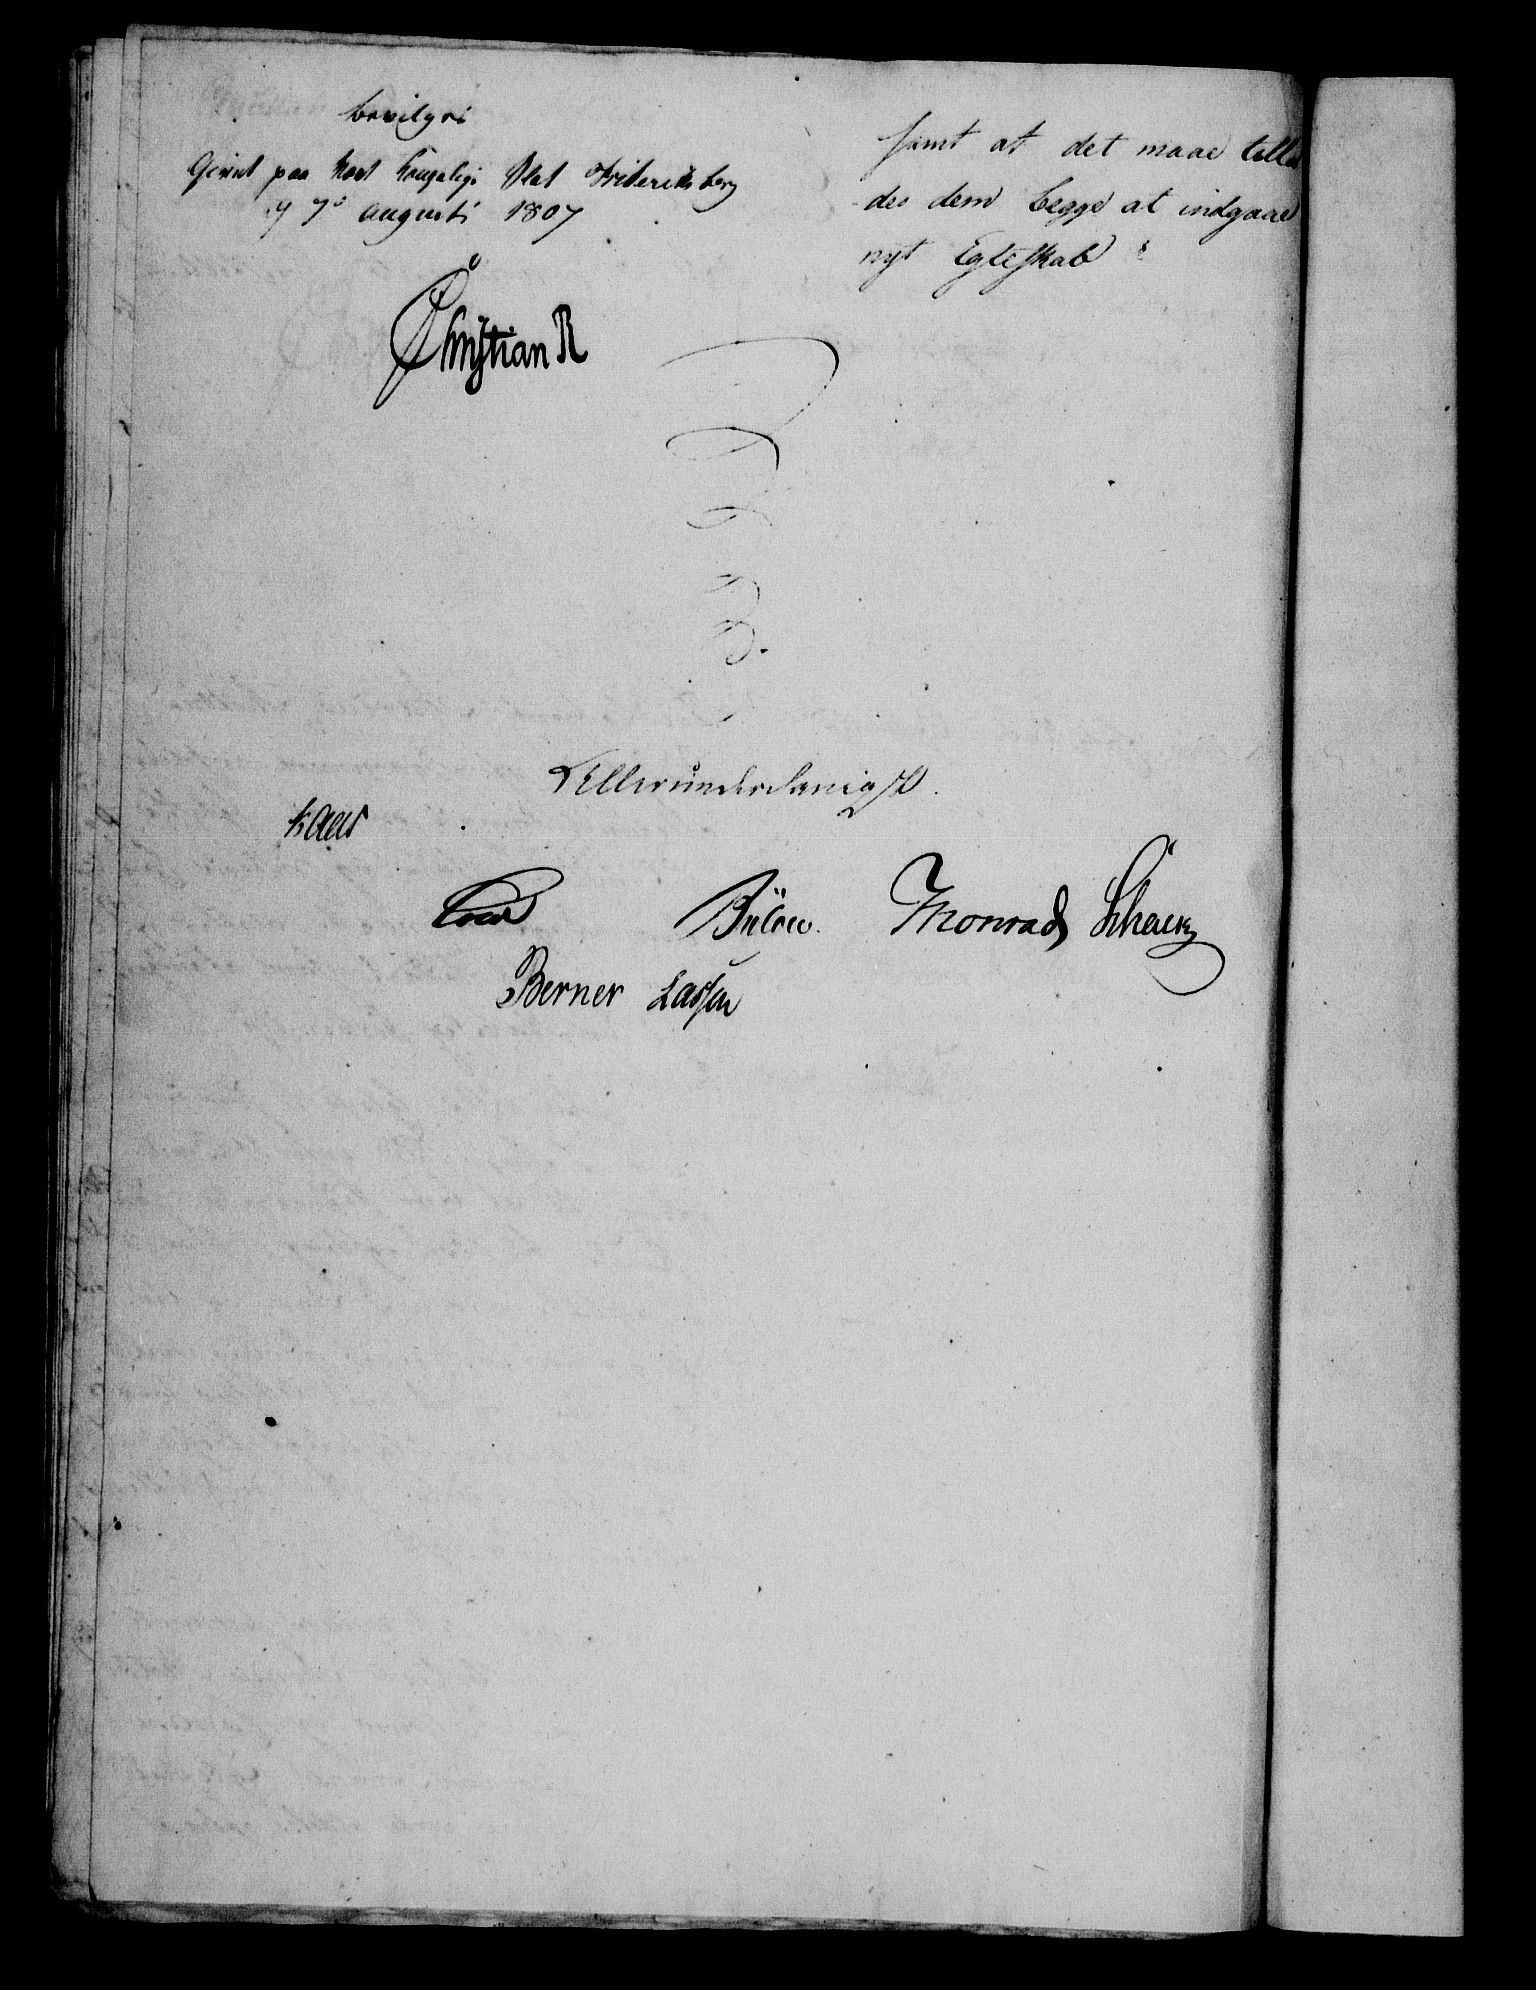 bevilges
Givet paa Vort Kongelige Slot Friderichsberg
d 7de Augusti 1807
Christian R
samt at det maae tilla
des dem begge at indgaae
nyt Egteskab
Allerunderdanigst.
Kaas
Bülow. Monrad
Berner Lassen